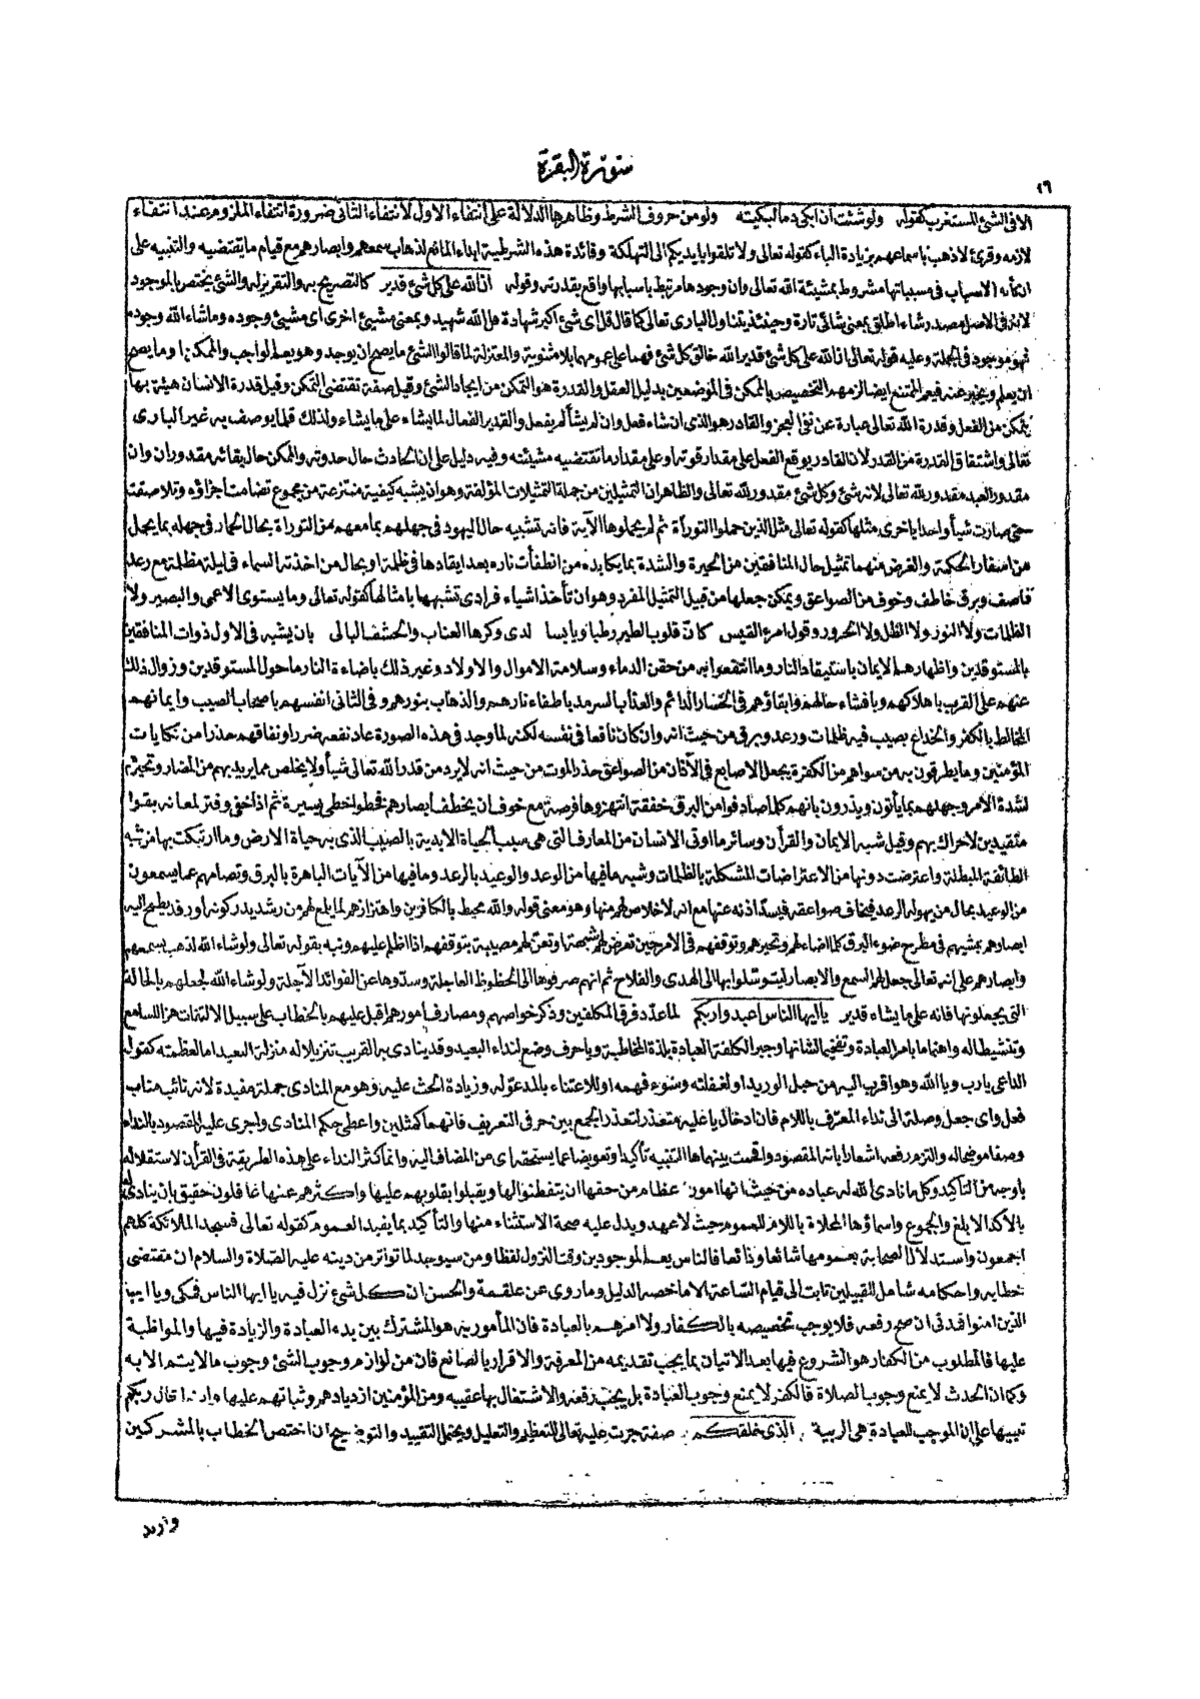 سورة البقرة
١٦
الا فى الشئ المستغرب كقوله ولو شئت ان ابكى دما لبكيته ولو من حروف الشرط وظاهرها الدلالة على انتفاء الاول لانتفاء الثانى ضرورة انتفاء الملزوم عند انتفاء
لازمه وقرئ لاذهب باسماعهم بزيادة الباء كقوله تعالى ولا تلقوا بايديكم الى التهلكة وفائدة هذه الشرطية ابداء المانع لذهاب سمعهم وابصارهم مع قيام ما يقتضيه والتنبيه على
ان تأثير الاسباب فى مسبباتها مشروط بمشيئة الله تعالى وان وجودها مرتبط باسبابها واقع بقدرته وقوله ان الله على كل شئ قدير كالتصريح به والتقرير له والشئ يختص بالموجود
لانه فى الاصل مصدر شاء اطلق بمعنى شائى تارة وحينئذ يتناول البارى تعالى كما قال قل اى شئ اكبر شهادة قل الله شهيد وبمعنى مشيئ اخرى اى مشيئ وجوده وما شاء الله وجوده
فهو موجود فى الجملة وعليه قوله تعالى ان الله على كل شئ قدير الله خالق كل شئ فهما على عمومهما بلا مثنوية والمعتزلة لما قالوا الشئ ما يصح ان يوجد وهو يعم الواجب والممكن او ما يصح
ان يعلم ويخبر عنه فيعم الممتنع ايضا لزمهم التخصيص بالممكن فى الموضعين بدليل العقل والقدرة هو التمكن من ايجاد الشئ وقيل صفة تقتضى التمكن وقيل قدرة الانسان هيئة بها
يتمكن من الفعل وقدرة الله تعالى عبارة عن نفى العجز والقادر هو الذى ان شاء فعل وان لم يشأ لم يفعل والقدير الفعال لما يشاء على ما يشاء ولذلك قلما يوصف به غير البارى
تعالى واشتقاق القدرة من القدر لان القادر يوقع الفعل على مقدار قوته او على مقدار ما تقتضيه مشيئته وفيه دليل على ان الحادث حال حدوثه والممكن حال بقائه مقدوران وان
مقدور العبد مقدور لله تعالى لانه شئ وكل شئ مقدور لله تعالى والظاهر ان التمثيلين من جملة التمثيلات المؤلفة وهو ان يشبه كيفية منتزعة من مجموع تضامت اجزاؤه وتلاصقت
حتى صارت شيأ واحدا باخرى مثلها كقوله تعالى مثل الذين حملوا التوراة ثم لم يحملوها الآية فانه تشبيه حال اليهود فى جهلهم بما معهم من التوراة بحال الحمار فى جهله بما يحمل
من اسفار الحكمة والغرض منهما تمثيل حال المنافقين من الحيرة والشدة بما يكابده من انطفأت ناره بعد ايقادها فى ظلمة او بحال من اخذته السماء فى ليلة مظلمة مع رعد
قاصف وبرق خاطف وخوف من الصواعق ويمكن جعلها من قبيل التمثيل المفرد وهو ان تأخذ اشياء فرادى تشبهها بامثالها كقوله تعالى وما يستوى الاعمى والبصير ولا
الظلمات ولا النور ولا الظل ولا الحرور وقول امرئ القيس كأن قلوب الطير رطبا ويابسا لدى وكرها العناب والحشف البالى بان يشبه فى الاول ذوات المنافقين
بالمستوقدين واظهارهم الايمان باستيقاد النار وما انتفعوا به من حقن الدماء وسلامة الاموال والاولاد وغير ذلك باضاءة النار ما حول المستوقدين وزوال ذلك
عنهم على القرب باهلاكهم وبافشاء حالهم وابقاؤهم فى الخسار الدائم والعذاب السرمد باطفاء نارهم والذهاب بنورهم وفى الثانى انفسهم باصحاب الصيب وايمانهم
المخالط بالكفر والخداع بصيب فيه ظلمات ورعد وبرق من حيث انه وان كان نافعا فى نفسه لكنه لما وجد فى هذه الصورة عاد نفعه ضررا ونفاقهم حذرا من نكايات
المؤمنين وما يطرقون به من سواهم من الكفرة بجعل الاصابع فى الآذان من الصواعق حذر الموت من حيث انه لا يرد من قدر الله تعالى شيأ ولا يخلص مما يريد بهم من المضار وتحيرهم
لشدة الامر وجهلهم بما يأتون ويذرون بانهم كلما صادفوا من البرق خفقة انتهزوها فرصة مع خوف ان يخطف ابصارهم فخطوا خطى يسيرة ثم اذا خفى وفتر لمعانه بقوا
متقيدين لا حراك بهم وقيل شبه الايمان والقرآن وسائر ما اوتى الانسان من المعارف التى هى سبب الحياة الابدية بالصيب الذى به حياة الارض وما ارتبكت بها من شبه
الطائفة المبطلة واعترضت دونها من الاعتراضات المشكلة بالظلمات وشبه ما فيها من الوعد والوعيد بالرعد وما فيها من الآيات الباهرة بالبرق وتصامهم عما يسمعون
من الوعيد بحال من يهوله الرعد فيخاف صواعقه فيسد اذنه عنها مع انه لا خلاص لهم منها وهو معنى قوله والله محيط بالكافرين واهتزازهم لما يلمع لهم من رشد يدركونه او رفد يطمح اليه
ابصارهم بمشيهم فى مطرح ضوء البرق كلما اضاء لهم وتحيرهم وتوقفهم فى الامر حين تعرض لهم شبهة او تعن لهم مصيبة بتوقفهم اذا اظلم عليهم ونبه بقوله تعالى ولو شاء الله لذهب بسمعهم
وابصارهم على انه تعالى جعل لهم السمع والابصار ليتوسلوا بها الى الهدى والفلاح ثم انهم صرفوها الى الحظوظ العاجلة وسدوها عن الفوائد الآجلة ولو شاء الله لجعلهم بالحالة
التى يجعلونها فانه على ما يشاء قدير يا ايها الناس اعبدوا ربكم لما عدد فرق المكلفين وذكر خواصهم ومصارف امورهم اقبل عليهم بالخطاب على سبيل الالتفات هزا للسامع
وتنشيطا له واهتماما بامر العبادة وتفخيما لشأنها وجبرا لكلفة العبادة بلذة المخاطبة ويا حرف وضع لنداء البعيد وقد ينادى به القريب تنزيلا له منزلة البعيد اما لعظمته كقول
الداعى يا رب ويا الله وهو اقرب اليه من حبل الوريد او لغفلته وسوء فهمه او للاعتناء بالمدعو له وزيادة الحث عليه وهو مع المنادى جملة مفيدة لانه نائب مناب
فعل واى جعل وصلة الى نداء المعرف باللام فان ادخال يا عليه متعذر لتعذر الجمع بين حرفى التعريف فانهما كمثلين واعطى حكم المنادى واجرى عليه المقصود بالنداء
وصفا موضحا له والتزم رفعه اشعارا بانه المقصود واقحمت بينهما ها التنبيه تأكيدا وتعويضا عما يستحقه اى من المضاف اليه وانما كثر النداء على هذه الطريقة فى القرآن لاستقلاله
باوجه من التأكيد وكل ما نادى الله له عباده من حيث انها امور عظام من حقها ان يتفطنوا لها ويقبلوا بقلوبهم عليها واكثرهم عنها غافلون حقيق بان ينادى له
بالآكد الابلغ والجموع واسماؤها المحلاة باللام للعموم حيث لا عهد ويدل عليه صحة الاستثناء منها والتأكيد بما يفيد العموم كقوله تعالى فسجد الملائكة كلهم
اجمعون واستدلال الصحابة بعمومها شائعا وذائعا فالناس يعم الموجودين وقت النزول لفظا ومن سيوجد لما تواتر من دينه عليه الصلاة والسلام ان مقتضى
خطابه واحكامه شامل للقبيلين ثابت الى قيام الساعة الا ما خصه الدليل وما روى عن علقمة والحسن ان كل شئ نزل فيه يا ايها الناس فمكى ويا ايها
الذين امنوا فمدنى ان صح رفعه فلا يوجب تخصيصه بالكفار ولا امرهم بالعبادة فان المأمور به هو المشترك بين بدء العبادة والزيادة فيها والمواظبة
عليها فالمطلوب من الكفار هو الشروع فيها بعد الاتيان بما يجب تقديمه من المعرفة والاقرار بالصانع فان من لوازم وجوب الشئ وجوب ما لا يتم الا به
وكما ان الحدث لا يمنع وجوب الصلاة فالكفر لا يمنع وجوب العبادة بل يجب رفعه والاشتغال بها عقيبه ومن المؤمنين ازديادهم وثباتهم عليها وانما قال ربكم
تنبيها على ان الموجب للعبادة هى الربية الذى خلقكم صفة جرت عليه تعالى للتعظيم والتعليل ويحتمل التقييد والتوضيح ان اختص الخطاب بالمشركين
واريد